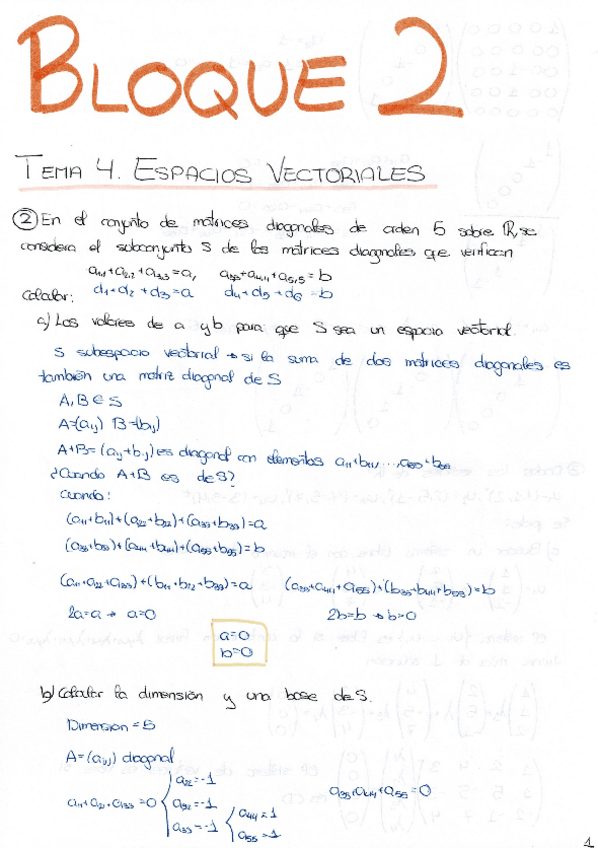 BLOQUE 2
TEMA 4. ESPACIOS VECTORIALES
② En el conjunto de matrices diagonales de orden 5 sobre ℝ, se
considera el subconjunto S de las matrices diagonales que verifican
a₁,₁+a₂,₂+a₃,₃=a, a₃₃+a₄,₄+a₅,₅=b
Calcular: d₁+d₂+d₃=a d₄+d₅+d₆=b
a) Los valores de a y b para que S sea un espacio vectorial.
S subespacio vectorial → si la suma de dos matrices diagonales es
también una matriz diagonal de S
A, B ∈ S
A=(aᵢⱼ) B=(bᵢⱼ)
A+B=(aᵢⱼ+bᵢⱼ) es diagonal con elementos a₁₁+b₁₁, ..., a₅₅+b₅₅
¿Cuando A+B es de S?
Cuando:
(a₁₁+b₁₁)+(a₂₂+b₂₂)+(a₃₃+b₃₃)=a
(a₃₃+b₃₃)+(a₄₄+b₄₄)+(a₅₅+b₅₅)=b
(a₁₁+a₂₂+a₃₃)+(b₁₁+b₂₂+b₃₃)=a (a₃₃+a₄₄+a₅₅)+(b₃₃+b₄₄+b₅₅)=b
2a=a → a=0 2b=b → b=0
a=0
b=0
b) Calcular la dimensión y una base de S.
Dimension = 5
A=(aᵢⱼ) diagonal
a₂₂=-1
a₁₁+a₂₂+a₃₃=0 a₃₃+a₄₄+a₅₅=0
a₃₃=-1
a₄₄=1
a₅₅=1
1